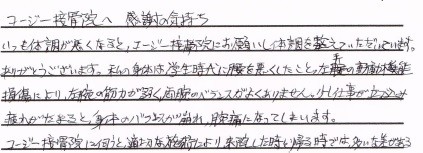 コージー接骨院へ 感謝の気持ち
いつも体調が悪くなると、コージー接骨院にお願いし体調を整えていただいています。
ありがとうございます。私の身体は学生時代に腰を悪くしたことと、左手の動脈の
損傷により、左腕の筋力が弱く、両腕のバランスがよくありません。少し仕事が
疲れがたまると、身体のバランスが崩れ、腰痛になってしまいます。
コージー接骨院に伺うと、適切な施術により来院した時と帰る時では多いな差がある